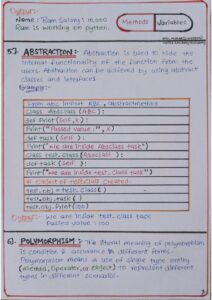 Output:-
Name: Ram Salary: 16000
Ram is working on python.
Methods
Variables
5.) ABSTRACTION:- Abstraction is used to hide the
internal functionality of the function from the
users. Abstraction can be achieved by using abstract
classes and interfaces.
Example:-
From abc import ABC, abstractmethod
class Absclass (ABC):
def Print (Self, x):
Print ("Passed value:", x)
def task (Self):
Print ("We are inside Absclass task")
class test_class (Absclass):
def task (Self):
Print ("We are inside test_class task")
# object of test_class created.
test_obj = test_class ()
test_obj.task ()
test_obj.Print (100)
Output:- We are inside test_class task
Passed value: 100
6). POLYMORPHISM:- The literal meaning of polymorphism
is condition of occurrence in different forms.
Polymorphism means a use of single type entity
(method, Operator, or object) to represent different
types in different scenario.